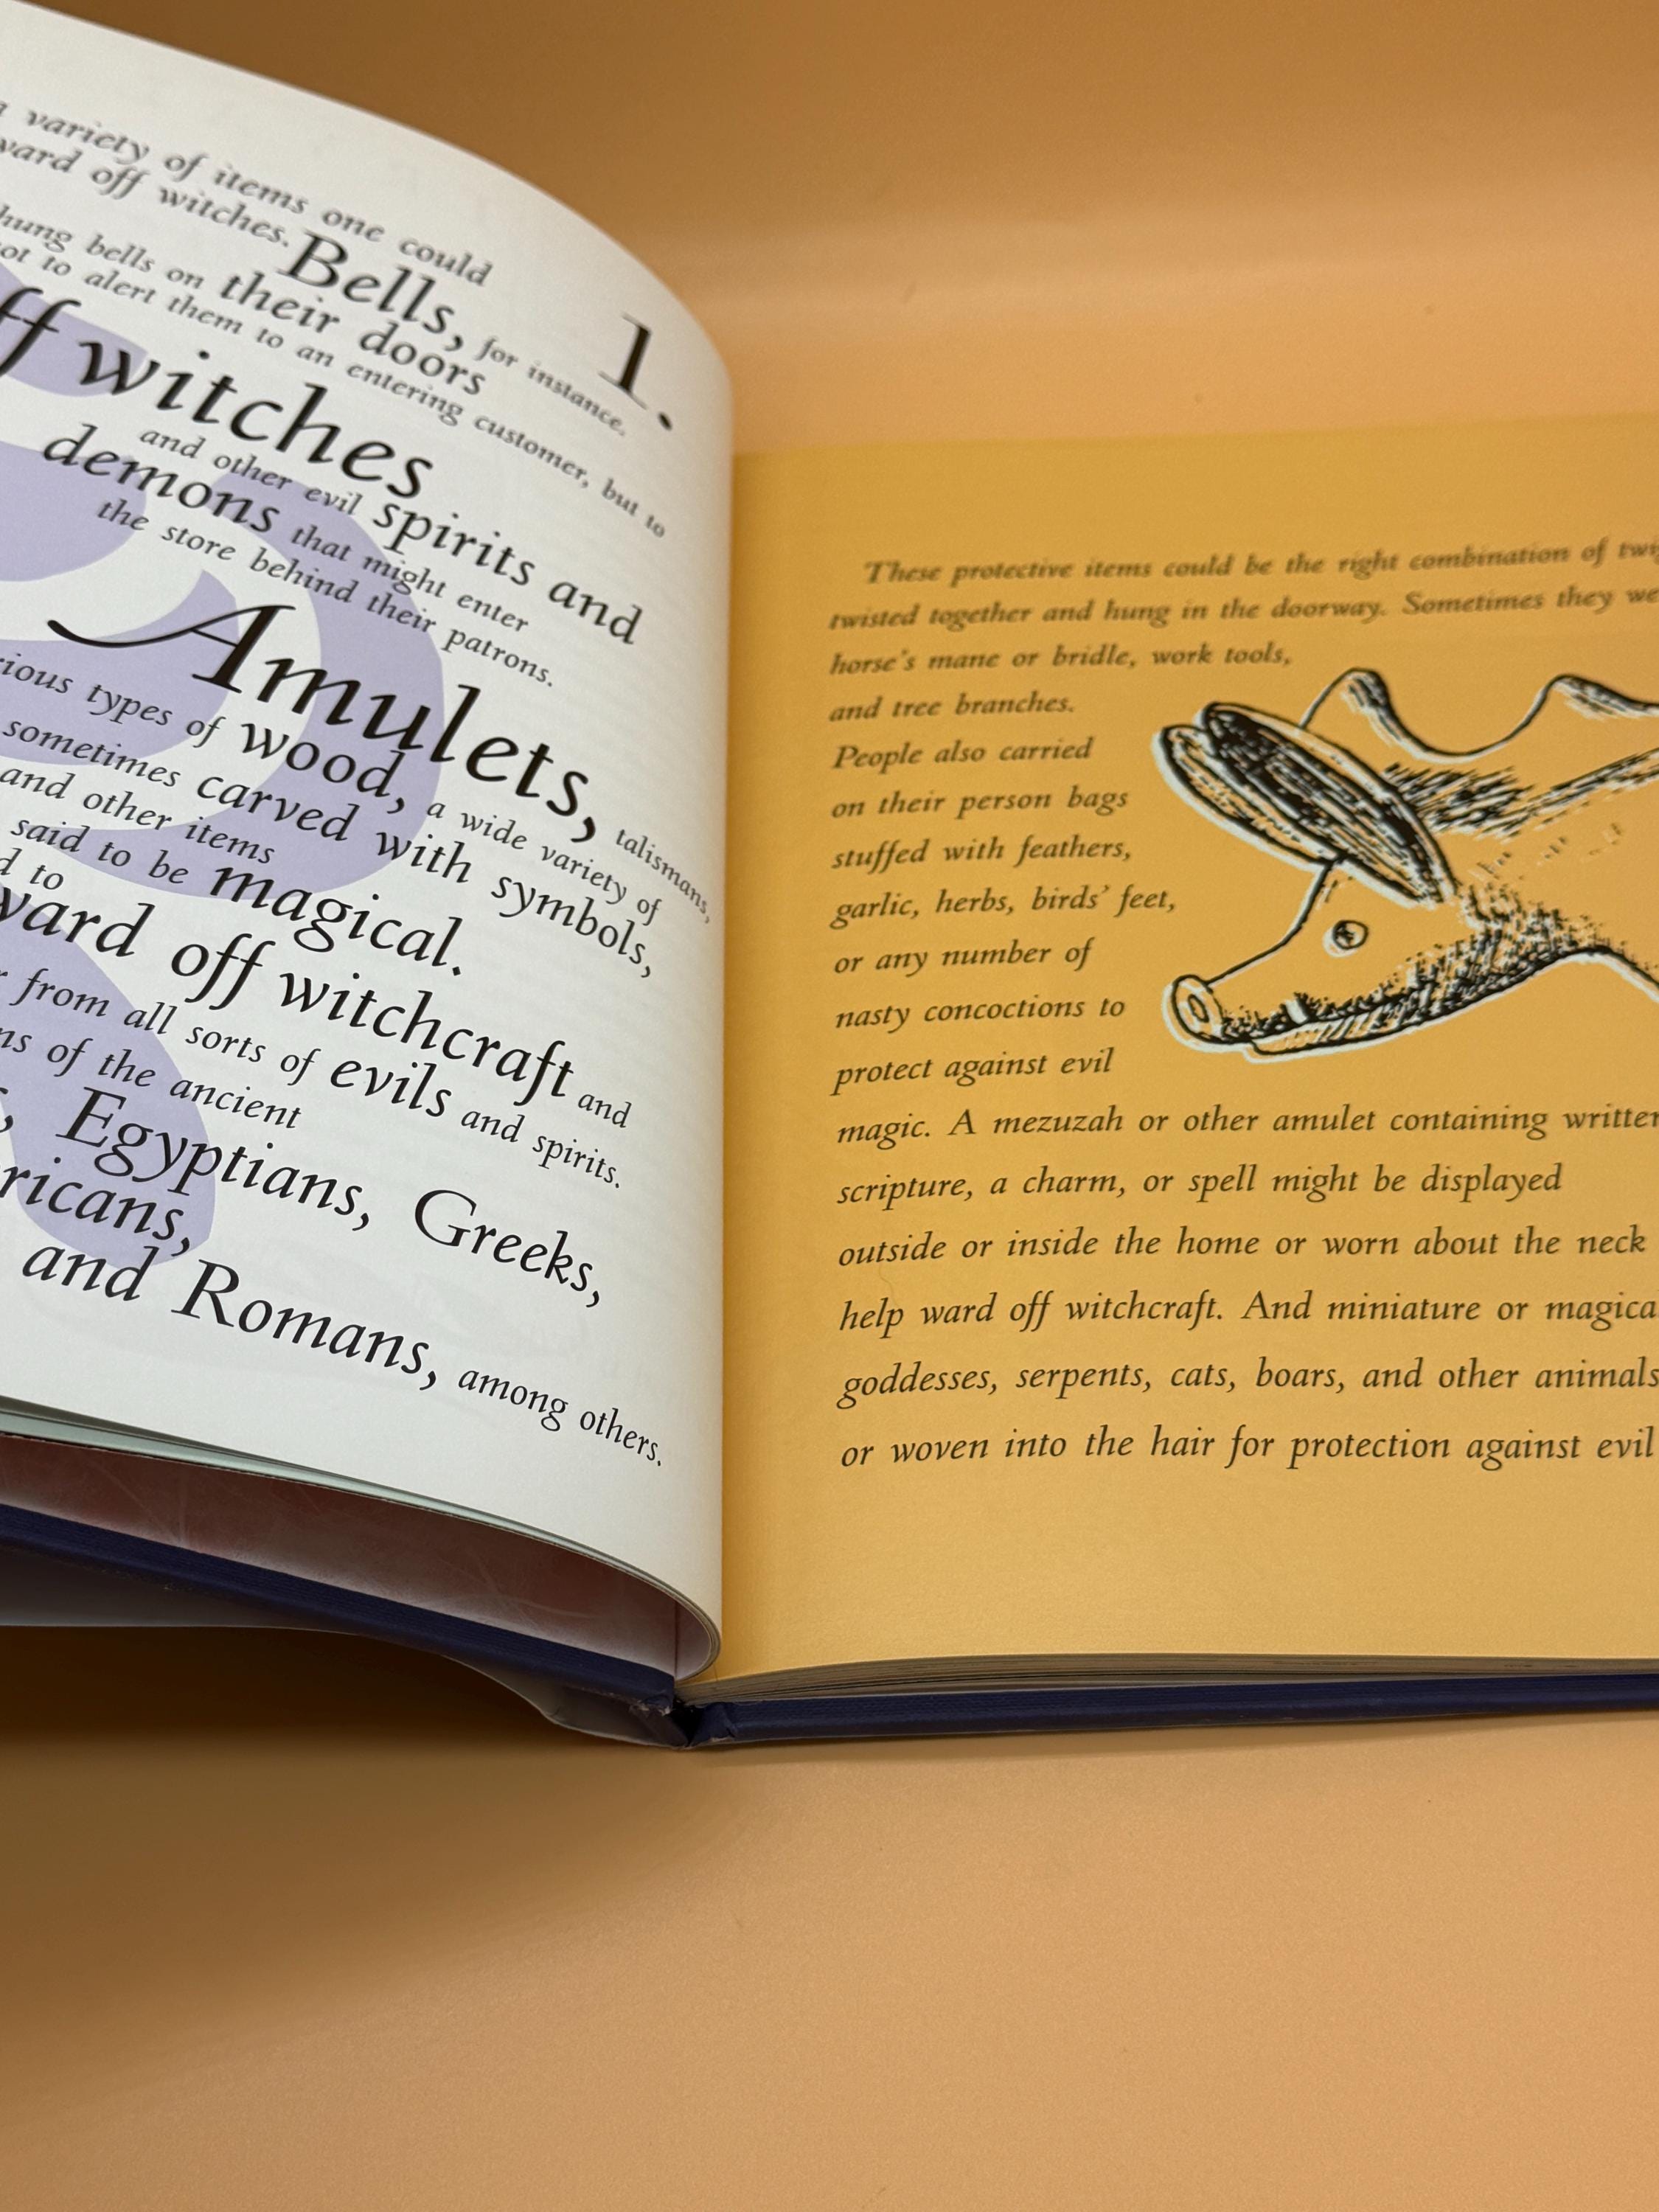 variety of items one could
ward off witches.
1.
Bells, for instance.
hung bells on their doors
not to alert them to an entering customer, but to
off witches
and other evil spirits and
demons that might enter
the store behind their patrons.
Amulets, talismans,
types of wood, a wide variety of
sometimes carved with symbols,
and other items
said to be magical.
to
ward off witchcraft and
from all sorts of evils and spirits.
of the ancient
Egyptians, Greeks,
and Romans, among others.
These protective items could be the right combination of
twisted together and hung in the doorway. Sometimes they
horse's mane or bridle, work tools,
and tree branches.
People also carried
on their person bags
stuffed with feathers,
garlic, herbs, birds' feet,
or any number of
nasty concoctions to
protect against evil
magic. A mezuzah or other amulet containing written
scripture, a charm, or spell might be displayed
outside or inside the home or worn about the neck
help ward off witchcraft. And miniature or
goddesses, serpents, cats, boars, and other animals
or woven into the hair for protection against evil